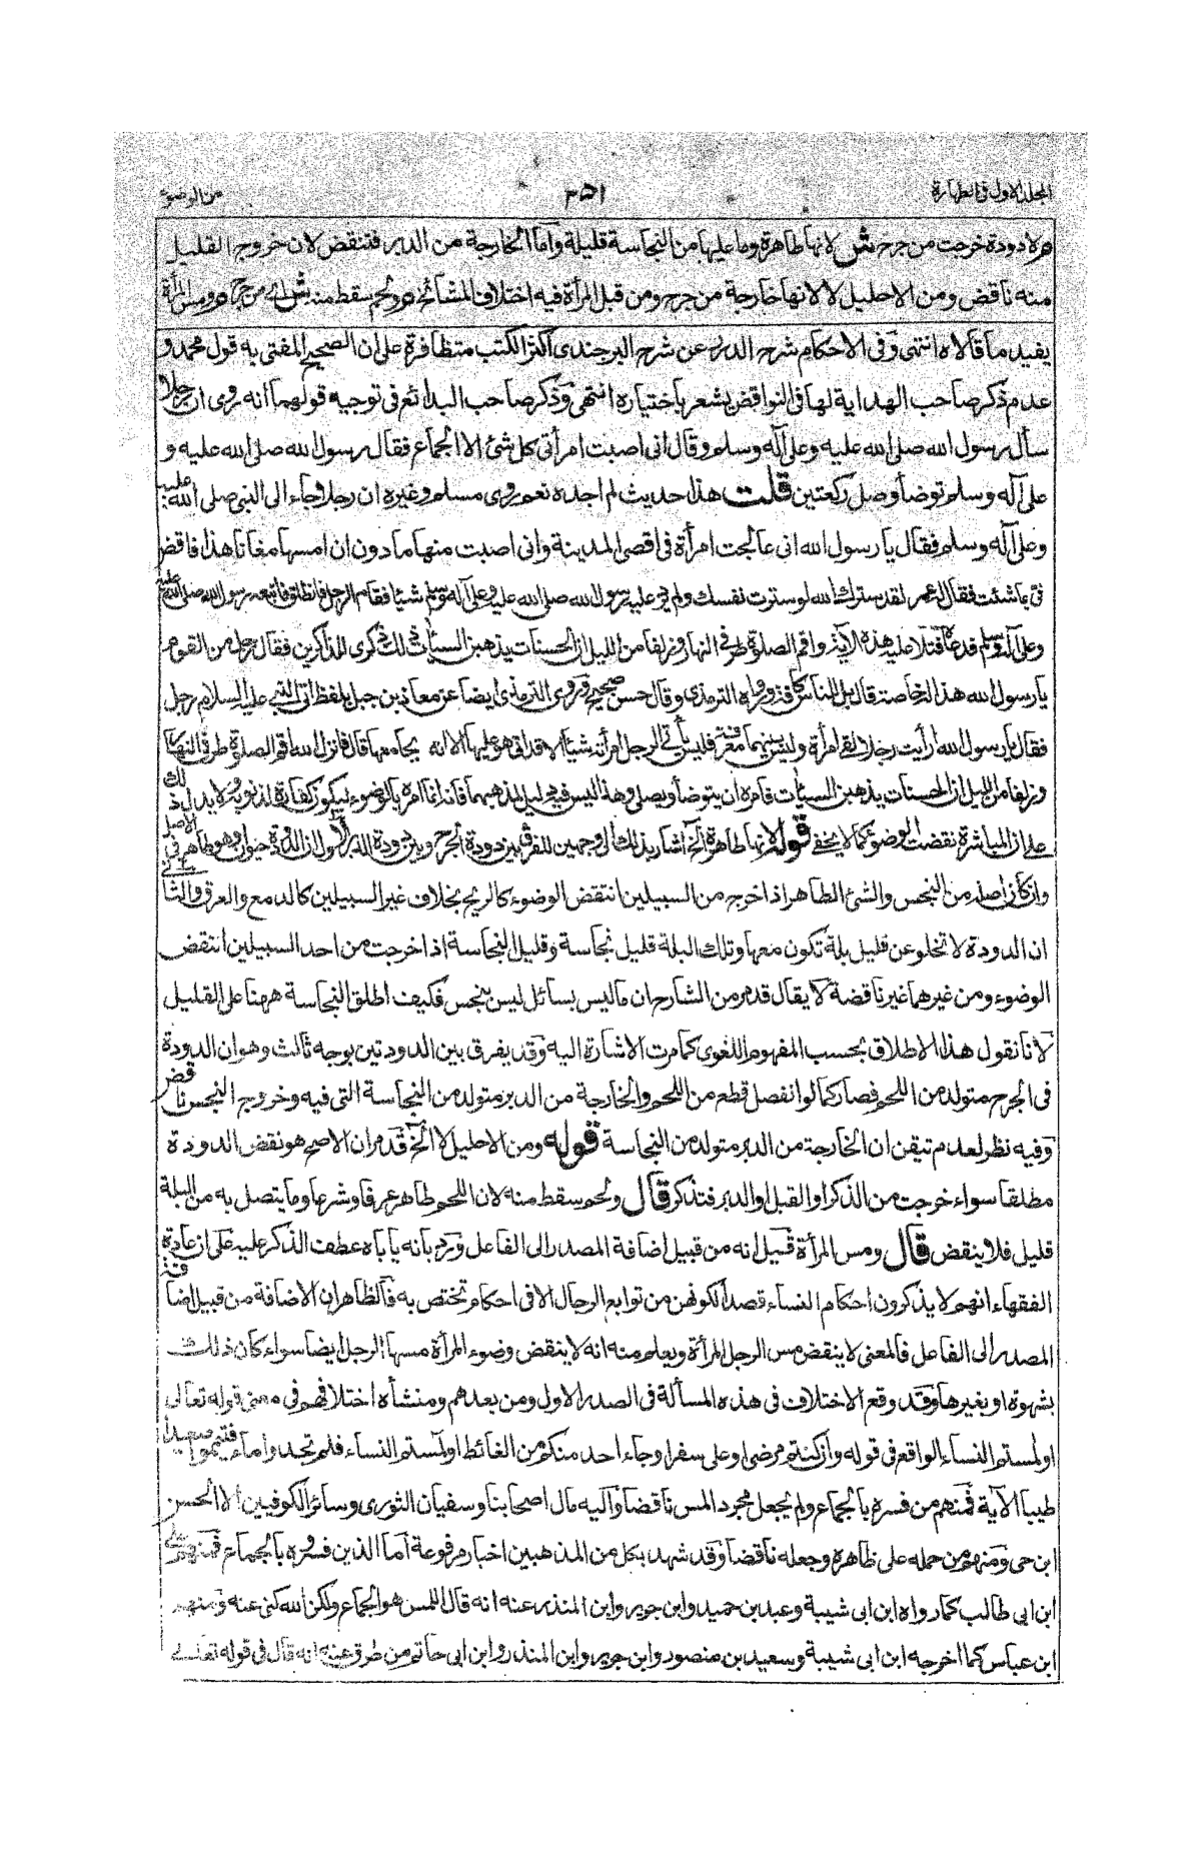 المجلد الاول فى الطهارة ٢٥١ من الوضوء
ص لا دودة خرجت من جرح ش لانها طاهرة وما عليها من النجاسة قليلة واما الخارجة من الدبر فتنقض لان خروج القليل
منه ناقض ومن الاحليل لا لانها خارجة من جرح ومن قبل المرأة فيه اختلاف المشائخ ص ولحم سقط منه ش اى من جرح ص ومس المرأة
يفيد ما قالاه انتهى وفى الاحكام شرح الدرر عن شرح البرجندى اكثر الكتب متظافرة على ان الصحيح المفتى به قول محمد و
عدم ذكر صاحب الهداية لها فى النواقض يشعر باختياره انتهى وذكر صاحب البدائع فى توجيه قولهما انه روى ان رجلا
سأل رسول الله صلى الله عليه وعلى آله وسلم وقال انى اصبت امرأتى كل شئ الا الجماع فقال رسول الله صلى الله عليه و
على آله وسلم توضأ وصل ركعتين قلت هذا حديث لم اجده نعم روى مسلم وغيره ان رجلا جاء الى النبى صلى الله عليه
وعلى آله وسلم فقال يا رسول الله انى عالجت امرأة فى اقصى المدينة وانى اصبت منها ما دون ان امسها فها انا هذا فاقض
فى بما شئت فقال له عمر لقد سترك الله لو سترت نفسك ولم يرد عليه رسول الله صلى الله عليه وعلى آله وسلم شيئا فقام الرجل فانطلق فاتبعه رسول الله صلى الله عليه
وعلى آله وسلم فدعاه فتلا عليه هذه الآية واقم الصلوة طرفى النهار وزلفا من الليل ان الحسنات يذهبن السيئات ذلك ذكرى للذاكرين فقال رجل من القوم
يا رسول الله هذا له خاصة قال بل للناس كافة ورواه الترمذى وقال حسن صحيح وروى الترمذى ايضا عن معاذ بن جبل بلفظ اتى النبى عليه السلام رجل
فقال يا رسول الله أرأيت رجلا لقى امرأة وليس بينهما معرفة فليس يأتى الرجل امرأته شيئا الا قد اتى هو عليها الا انه لم يجامعها قال فانزل الله اقم الصلوة طرفى النهار
وزلفا من الليل ان الحسنات يذهبن السيئات فامره ان يتوضأ ويصلى وهذا ليس فيه دليل لمذهبهما فانه انما امره بالوضوء ليكون كفارة لذنوبه ولا يدل ذلك
على ان المباشرة نقضت الوضوء كما لا يخفى قوله لانها طاهرة الخ اشار بذلك الى وجهين للفرق بين دودة الجرح وبين دودة الدبر الاول ان الدودة حيوان وهو طاهر فى الاصل
وان كان اصله من النجس والشئ الطاهر اذا خرج من السبيلين انتقض الوضوء كالريح بخلاف غير السبيلين كالدمع والعرق والثانى
ان الدودة لا تخلو عن قليل بلة تكون معها وتلك البلة قليل نجاسة وقليل النجاسة اذا خرجت من احد السبيلين انتقض
الوضوء ومن غيرهما غير ناقضة لا يقال قد مر من الشارح ان ما ليس بسائل ليس بنجس فكيف اطلق النجاسة ههنا على القليل
لانا نقول هذا الاطلاق بحسب المفهوم اللغوى كما مرت الاشارة اليه وقد يفرق بين الدودتين بوجه ثالث وهو ان الدودة
فى الجرح متولد من اللحم فصار كما لو انفصل قطع من اللحم والخارجة من الدبر متولد من النجاسة التى فيه وخروج النجس ناقض
وفيه نظر لعدم تيقن ان الخارجة من الدبر متولد من النجاسة قوله ومن الاحليل لا الخ قد مر ان الاصح هو نقض الدودة
مطلقا سواء خرجت من الذكر او القبل او الدبر فتذكر قال ولحم سقط منه لان اللحم طاهر عرفا وشرعا وما يتصل به من البلة
قليل فلا ينقض قال ومس المرأة قيل انه من قبيل اضافة المصدر الى الفاعل ورد بانه ياباه عطف الذكر عليه على ان عادة
الفقهاء انهم لا يذكرون احكام النساء قصدا لكونهن من توابع الرجال الا فى احكام تختص به فالظاهر ان الاضافة من قبيل اضافة
المصدر الى الفاعل فالمعنى لا ينقض مس الرجل المرأة ويعلم منه انه لا ينقض وضوء المرأة مسها الرجل ايضا سواء كان ذلك
بشهوة او بغيرها وقد وقع الاختلاف فى هذه المسألة فى الصدر الاول ومن بعدهم ومنشأه اختلافهم فى معنى قوله تعالى
او لمستم النساء الواقع فى قوله وان كنتم مرضى او على سفر او جاء احد منكم من الغائط او لمستم النساء فلم تجدوا ماء فتيمموا صعيدا
طيبا الآية فمنهم من فسره بالجماع ولم يجعل مجرد المس ناقضا واليه مال اصحابنا وسفيان الثورى وسائر الكوفيين الا الحسن
ابن حى ومنهم من حمله على ظاهره وجعله ناقضا وقد شهد بكل من المذهبين اخبار مرفوعة اما الذين فسروه بالجماع فمنهم على
ابن ابى طالب كما رواه ابن ابى شيبة وعبد بن حميد وابن جرير وابن المنذر عنه انه قال اللمس هو الجماع ولكن الله كنى عنه ومنهم
ابن عباس كما اخرجه ابن ابى شيبة وسعيد بن منصور وابن جرير وابن المنذر وابن ابى حاتم من طرق عنه انه قال فى قوله تعالى